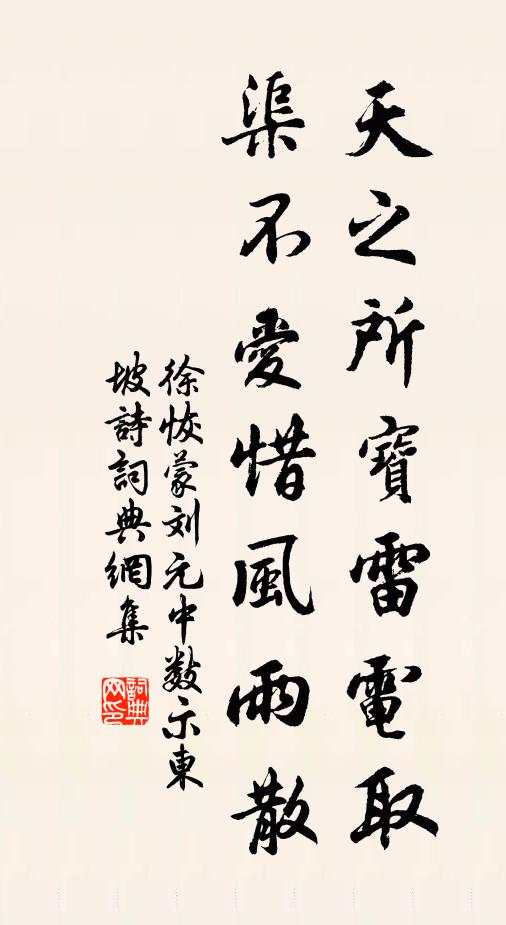 天之所寶雷電取
渠不愛惜風雨散
徐恢蒙刘元中数示東
坡詩詞典網集
詞典
网印